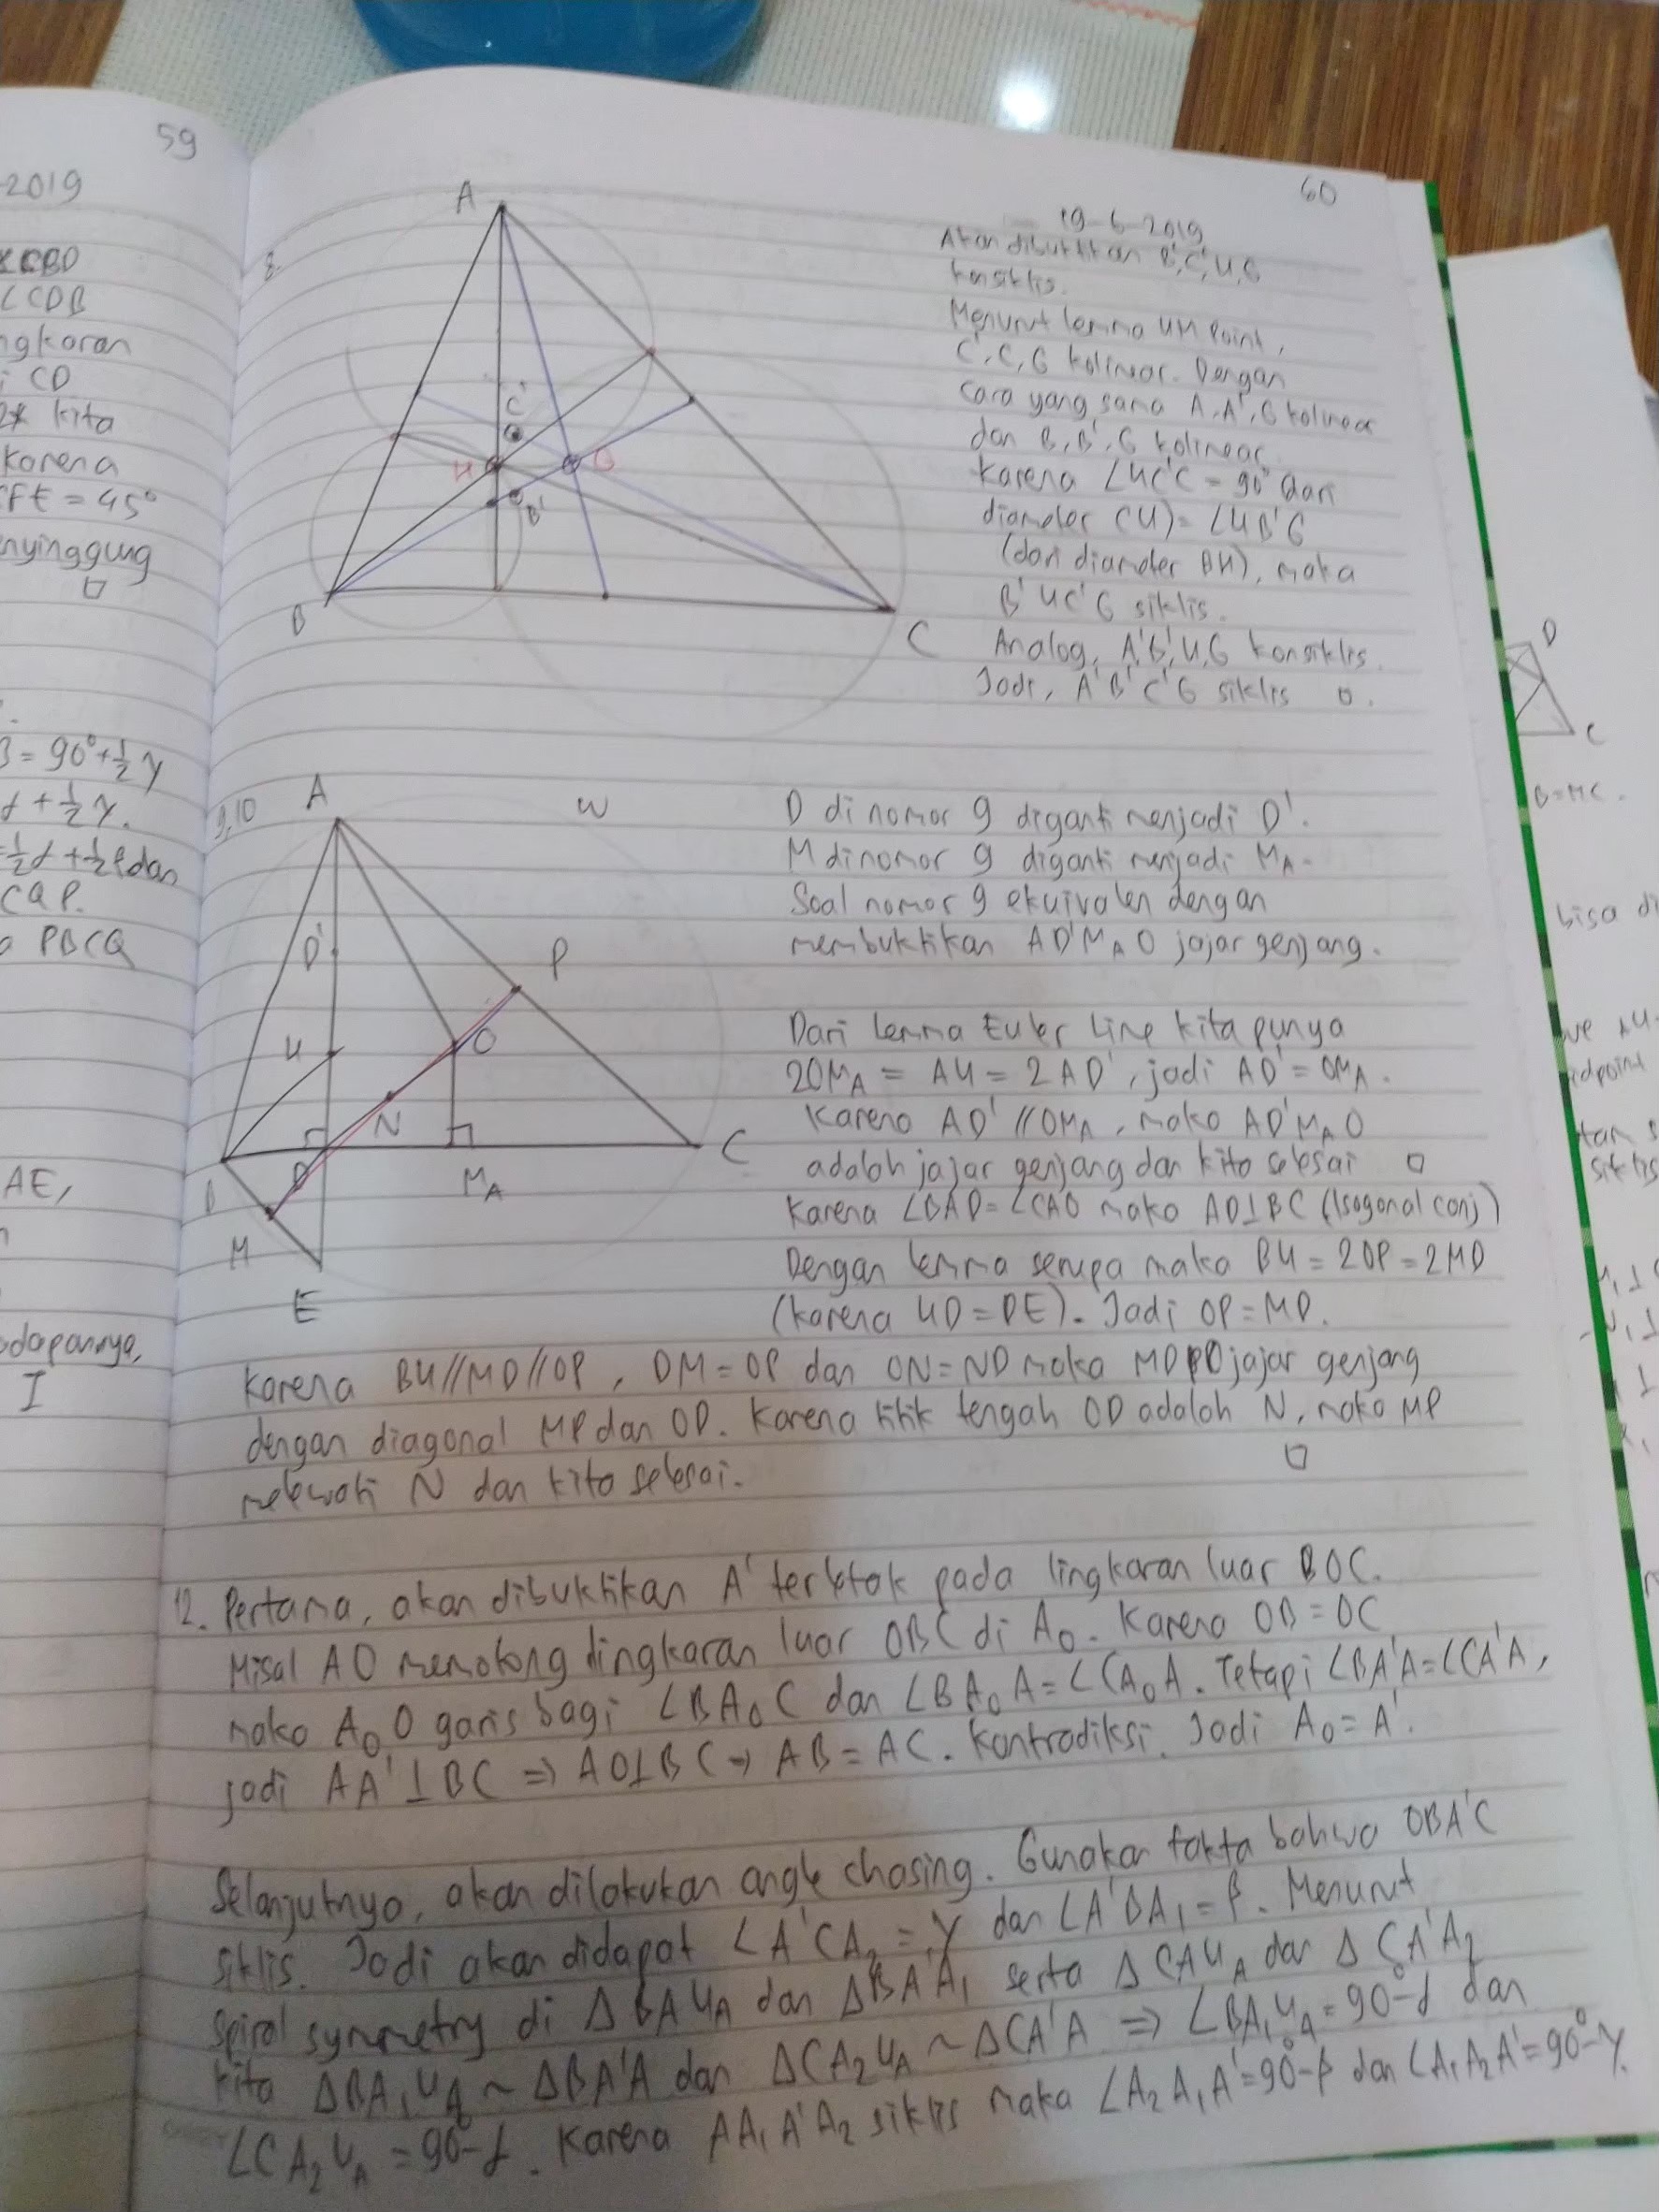 59
-2019
∠CBD
∠CDB
ngkaran
CD
kita
karena
CFE = 45°
enyinggung
□
= 90° + ½γ
+ ½γ.
½α + ½β dan
CQP.
PBCQ
AE,
dapannya,
I
60
19-6-2019
8.
A
C'
H
G
B'
B
C
Akan dibuktikan B', C', H, G
konsiklis.
Menurut lemma HM Point,
C', C, G kolinear. Dengan
cara yang sama A, A', G kolinear
dan B, B', G kolinear.
Karena ∠HC'C = 90° dari
diameter CH) = ∠HB'G
(dari diameter BH), maka
B'HC'G siklis.
Analog, A', B', H, G konsiklis.
Jadi, A'B'C'G siklis □.
9,10
A
W
D'
P
H
O
N
D
B
M_A
C
M
E
D di nomor 9 diganti menjadi D'.
M di nomor 9 diganti menjadi M_A.
Soal nomor 9 ekuivalen dengan
membuktikan AD'M_AO jajar genjang.
Dari lemma Euler Line kita punya
2OM_A = AH = 2AD', jadi AD' = OM_A.
Karena AD' // OM_A, maka AD'M_AO
adalah jajar genjang dan kita selesai □
Karena ∠BAD = ∠CAO maka AD⊥BC (Isogonal conj)
Dengan lemma serupa maka BH = 2OP = 2MD
(karena HD = DE). Jadi OP = MD.
Karena BH//MD//OP, DM = OP dan ON = ND maka MDPO jajar genjang
dengan diagonal MP dan OD. Karena titik tengah OD adalah N, maka MP
melewati N dan kita selesai. □
12. Pertama, akan dibuktikan A' terletak pada lingkaran luar BOC.
Misal AO memotong lingkaran luar OBC di A₀. Karena OB = OC
maka A₀O garis bagi ∠BA₀C dan ∠BA₀A = ∠CA₀A. Tetapi ∠BA'A = ∠CA'A,
jadi AA' ⊥ BC ⇒ AO ⊥ BC ⇒ AB = AC. Kontradiksi. Jadi A₀ = A'.
Selanjutnya, akan dilakukan angle chasing. Gunakan fakta bahwa OBA'C
siklis. Jadi akan didapat ∠A'CA₂ = γ dan ∠A'BA₁ = β. Menurut
spiral symmetry di ΔBAH_A dan ΔBA'A₁ serta ΔCAH_A dan ΔCA'A₂
kita ΔBA₁H_A ~ ΔBA'A dan ΔCA₂H_A ~ ΔCA'A ⇒ ∠BA₁H_A = 90°-α dan
∠CA₂H_A = 90°-α. Karena AA₁A'A₂ siklis maka ∠A₂A₁A' = 90°-β dan ∠A₁A₂A' = 90°-γ.
D
C
B=MC.
bisa di